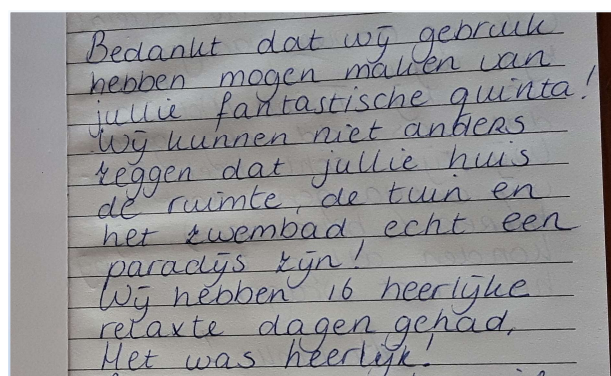 Bedankt dat wij gebruik
hebben mogen maken van
jullie fantastische quinta!
Wij kunnen niet anders
zeggen dat jullie huis
de ruimte, de tuin en
het zwembad echt een
paradijs zijn!
Wij hebben 16 heerlijke
relaxte dagen gehad,
Het was heerlijk!